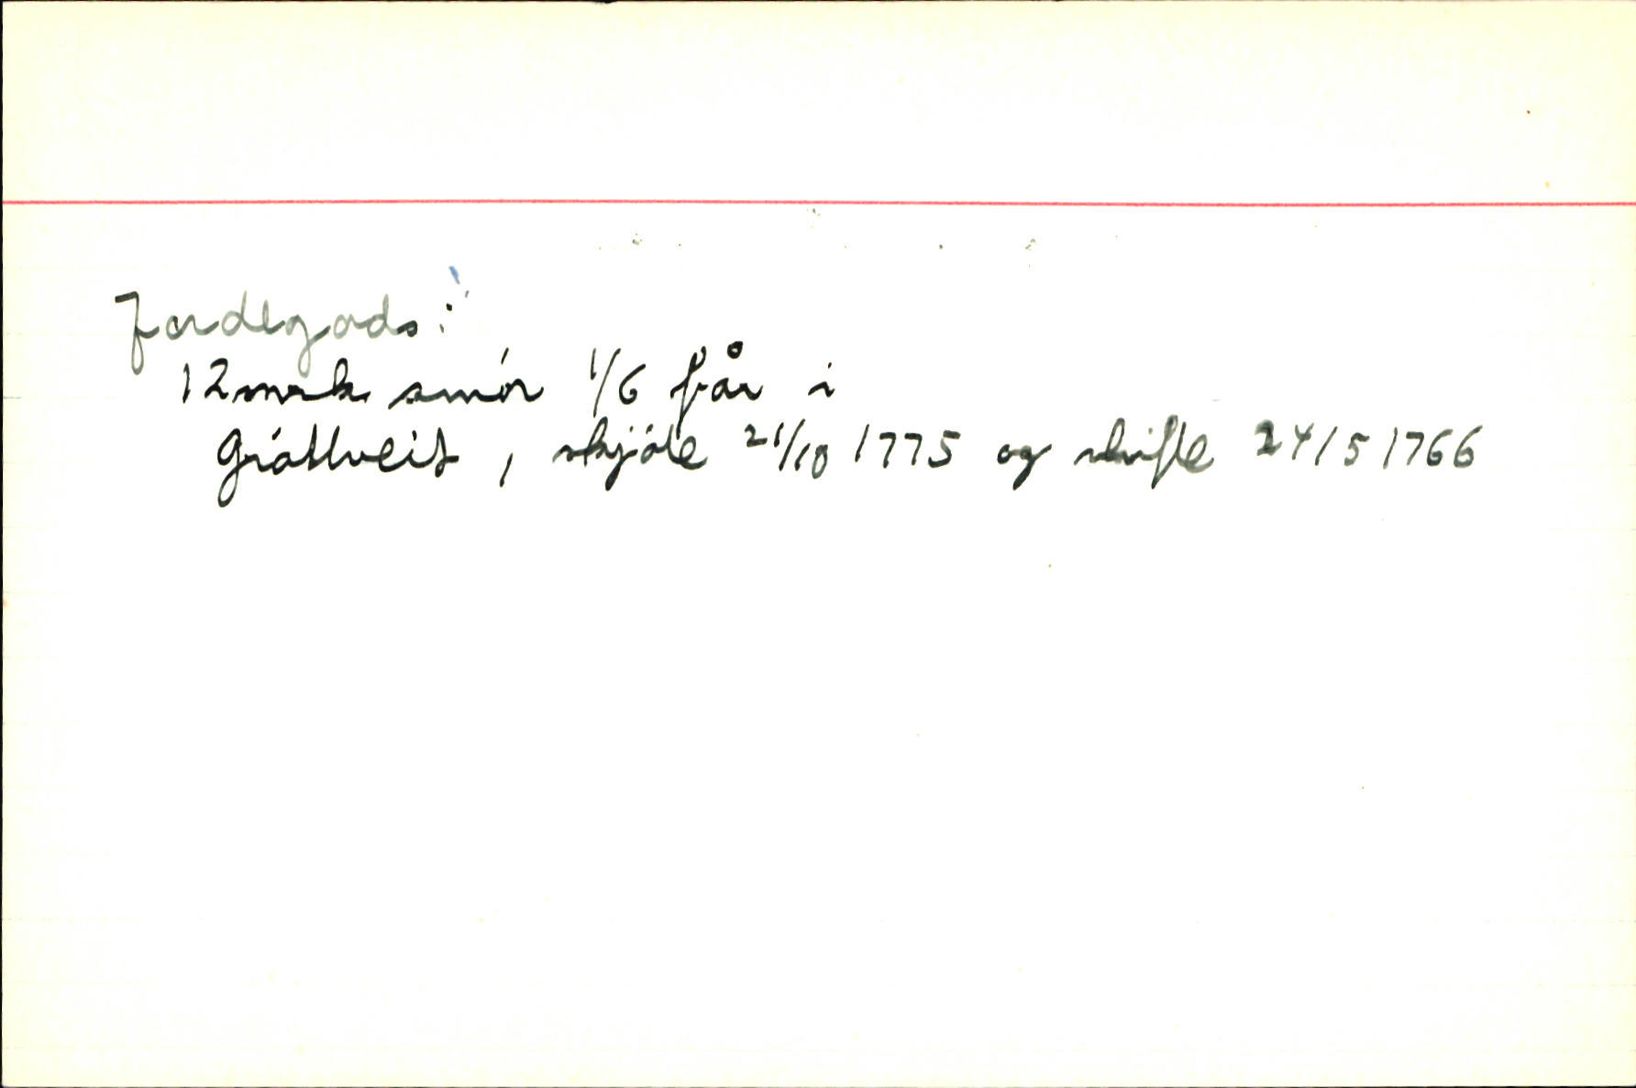 Jordegods:
12 mrk smór 1/6 får i
Gróttveit, skjóte 21/10 1775 og skifte 24/5 1766